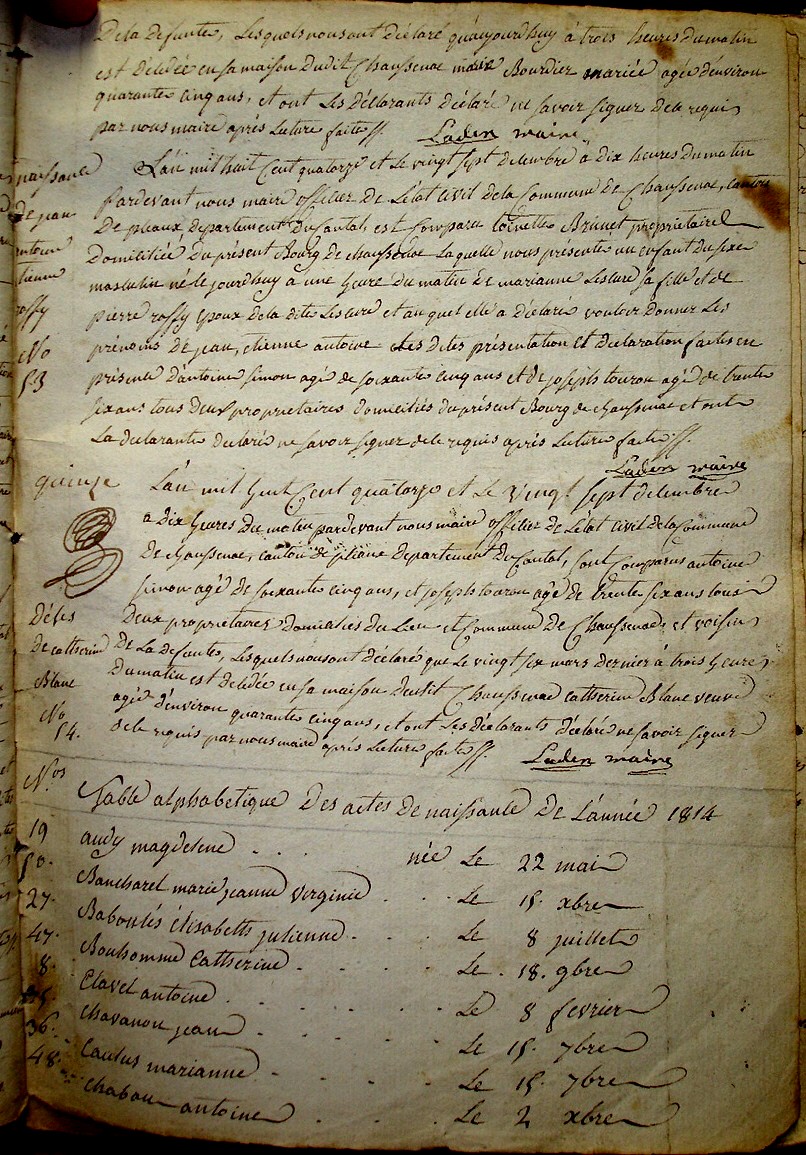 De la defunte, Lesquels nous ont déclaré qu'aujourd'huy à trois heures du matin
est décédée en sa maison dudit Chaussenac marie Bourdier mariée agée d'environ
quarante cinq ans, et ont Les déclarants déclaré ne savoir signer de ce requis
par nous maire aprés Lecture faite ff. Laden maire
naissance
De jean
antoine
etienne
roffy
No
53
L'an mil huit Cent quatorze et Le vingt sept decembre à dix heures du matin
Pardevant nous maire officier De L'état Civil de la Commune De Chaussenac, canton
De pleaux departement Du Cantal, est Comparu toinette Brunet propriétaire
Domiciliée Du présent Bourg de chaussenac Laquelle nous présente un enfant du sexe
masculin né le jourd'huy à une heure Du matin De marianne Lescure sa fille et de
pierre roffy Epoux De la dite Lescure et au quel elle a déclaré vouloir Donner Les
prénoms De jean, etienne antoine Les dites présentation et déclaration faites en
présence d'antoine simon agé de soixante cinq ans et de joseph touron agé de trente
six ans tous deux proprietaires domiciliés du présent Bourg de chaussenac et ont
La declarante declaré ne savoir signer de ce requis aprés Lecture faite ff.
Laden maire
quinze
Décès
De catherine
Blanc
No
54.
L'an mil huit Cent quatorze et Le vingt sept decembre
a dix heures Du matin pardevant nous maire officier De L'état Civil de la Commune
De chaussenac, canton de pleaux departement Du Cantal, sont Comparus antoine
simon agé de soixante cinq ans, et joseph touron agé De trente six ans tous
Deux propriétaires Domiciliés Du Lieu et Commune De Chaussenac et voisins
De La defunte, Lesquels nous ont déclaré que Le vingt six mars dernier à trois heures
Du matin est decédée en sa maison dudit Chaussenac Catherine Blanc veuve
agée d'environ quarante cinq ans, et ont Les déclarants déclaré ne savoir signer
de ce requis par nous maire aprés Lecture faite ff. Laden maire
Nos
Table alphabetique Des actes De naissance De L'année 1814
19 audy magdeleine née Le 22 mai
50. Bancharel marie jeanne virginie Le 15. xbre
27. Baboulés élisabeth julienne Le 8 juillet
47. Bonhomme Catherine Le 18. 9bre
8. Clavel antoine Le 8 fevrier
35. chavanon jean Le 15. 7bre
36. Caulus marianne Le 15. 7bre
48. chabau antoine Le 2 xbre